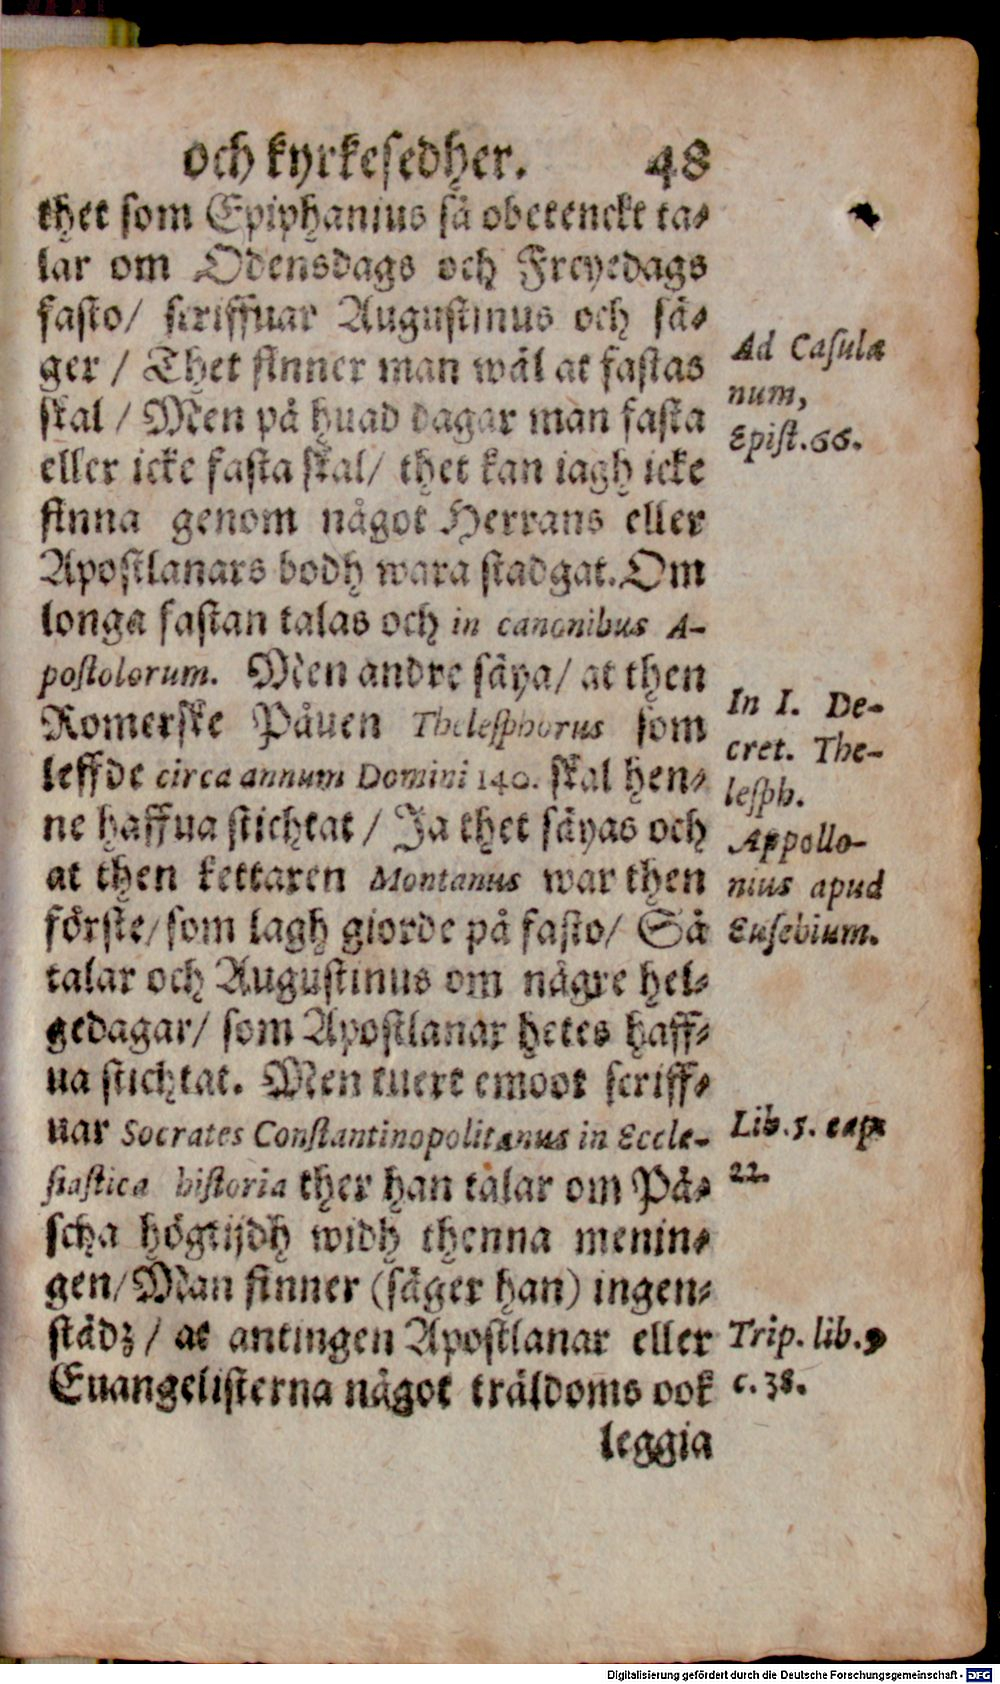 och kyrkesedher. 48
thet som Epiphanius så obetenckt ta⸗
lar om Odensdags och Freyedags
fasto/ scriffuar Augustinus och sä⸗
ger / Thet finner man wäl at fastas
skal / Men på huad dagar man fasta
eller icke fasta skal/ thet kan iagh icke
finna genom något Herrans eller
Apostlanars bodh wara stadgat. Om
longa fastan talas och in canonibus A-
postolorum. Men andre säya/ at then
Romerske Påuen Thelesphorus som
leffde circa annum Domini 140. skal hen⸗
ne haffua stichtat / Ja thet säyas och
at then kettaren Montanus war then
förste/ som lagh giorde på fasto/ Så
talar och Augustinus om någre hel⸗
gedagar/ som Apostlanar hetes haff⸗
ua stichtat. Men tuert emoot scriff⸗
uar Socrates Constantinopolitanus in Eccle-
siastica historia ther han talar om På⸗
scha högtijdh widh thenna menin⸗
gen/ Man finner (säger han) ingen⸗
städz / at antingen Apostlanar eller
Euangelisterna något träldoms ook
leggia
Ad Casulæ
num,
Epist. 66.
In I. De-
cret. The-
lesph.
Appollo-
nius apud
Eusebium.
Lib. 5. cap
22.
Trip. lib. 9
c. 38.
Digitalisierung gefördert durch die Deutsche Forschungsgemeinschaft - DFG